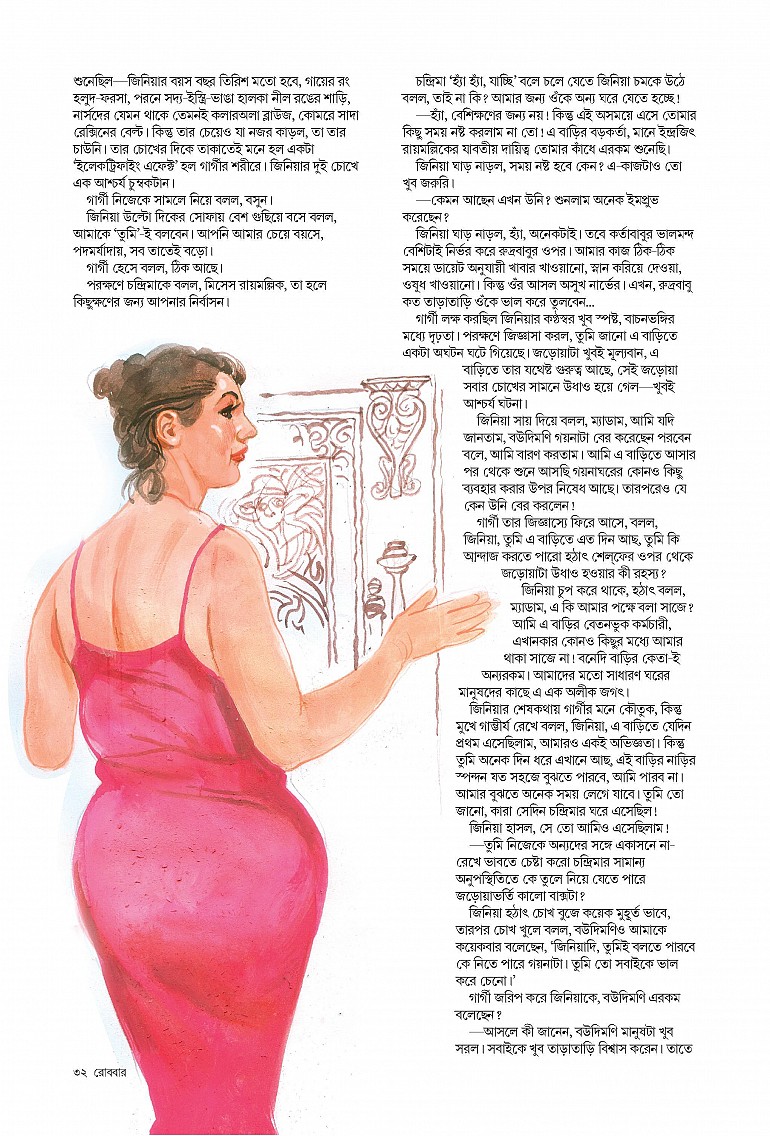 শুনেছিল—জিনিয়ার বয়স বছর তিরিশ মতো হবে, গায়ের রং
হলুদ-ফরসা, পরনে সদ্য-ইস্ত্রি-ভাঙা হালকা নীল রঙের শাড়ি,
নার্সদের যেমন থাকে তেমনই কলারঅলা ব্লাউজ, কোমরে সাদা
রেক্সিনের বেল্ট। কিন্তু তার চেয়েও যা নজর কাড়ল, তা তার
চাউনি। তার চোখের দিকে তাকাতেই মনে হল একটা
‘ইলেকট্রিফাইং এফেক্ট’ হল গার্গীর শরীরে। জিনিয়ার দুই চোখে
এক আশ্চর্য চুম্বকটান।
গার্গী নিজেকে সামলে নিয়ে বলল, বসুন।
জিনিয়া উল্টো দিকের সোফায় বেশ গুছিয়ে বসে বলল,
আমাকে ‘তুমি’-ই বলবেন। আপনি আমার চেয়ে বয়সে,
পদমর্যাদায়, সব তাতেই বড়ো।
গার্গী হেসে বলল, ঠিক আছে।
পরক্ষণে চন্দ্রিমাকে বলল, মিসেস রায়মল্লিক, তা হলে
কিছুক্ষণের জন্য আপনার নির্বাসন।
চন্দ্রিমা ‘হ্যাঁ হ্যাঁ, যাচ্ছি’ বলে চলে যেতে জিনিয়া চমকে উঠে
বলল, তাই না কি? আমার জন্য ওঁকে অন্য ঘরে যেতে হচ্ছে!
—হ্যাঁ, বেশিক্ষণের জন্য নয়! কিন্তু এই অসময়ে এসে তোমার
কিছু সময় নষ্ট করলাম না তো! এ বাড়ির বড়কর্তা, মানে ইন্দ্রজিৎ
রায়মল্লিকের যাবতীয় দায়িত্ব তোমার কাঁধে এরকম শুনেছি।
জিনিয়া ঘাড় নাড়ল, সময় নষ্ট হবে কেন? এ-কাজটাও তো
খুব জরুরি।
—কেমন আছেন এখন উনি? শুনলাম অনেক ইমপ্রুভ
করেছেন?
জিনিয়া ঘাড় নাড়ল, হ্যাঁ, অনেকটাই। তবে কর্তাবাবুর ভালমন্দ
বেশিটাই নির্ভর করে রুদ্রবাবুর ওপর। আমার কাজ ঠিক-ঠিক
সময়ে ডায়েট অনুযায়ী খাবার খাওয়ানো, স্নান করিয়ে দেওয়া,
ওষুধ খাওয়ানো। কিন্তু ওঁর আসল অসুখ নার্ভের। এখন, রুদ্রবাবু
কত তাড়াতাড়ি ওঁকে ভাল করে তুলবেন...
গার্গী লক্ষ করছিল জিনিয়ার কণ্ঠস্বর খুব স্পষ্ট, বাচনভঙ্গির
মধ্যে দৃঢ়তা। পরক্ষণে জিজ্ঞাসা করল, তুমি জানো এ বাড়িতে
একটা অঘটন ঘটে গিয়েছে। জড়োয়াটা খুবই মূল্যবান, এ
বাড়িতে তার যথেষ্ট গুরুত্ব আছে, সেই জড়োয়া
সবার চোখের সামনে উধাও হয়ে গেল—খুবই
আশ্চর্য ঘটনা।
জিনিয়া সায় দিয়ে বলল, ম্যাডাম, আমি যদি
জানতাম, বউদিমণি গয়নাটা বের করেছেন পরবেন
বলে, আমি বারণ করতাম। আমি এ বাড়িতে আসার
পর থেকে শুনে আসছি গয়নাঘরের কোনও কিছু
ব্যবহার করার উপর নিষেধ আছে। তারপরেও যে
কেন উনি বের করলেন!
গার্গী তার জিজ্ঞাস্যে ফিরে আসে, বলল,
জিনিয়া, তুমি এ বাড়িতে এত দিন আছ, তুমি কি
আন্দাজ করতে পারো হঠাৎ শেল্‌ফের ওপর থেকে
জড়োয়াটা উধাও হওয়ার কী রহস্য?
জিনিয়া চুপ করে থাকে, হঠাৎ বলল,
ম্যাডাম, এ কি আমার পক্ষে বলা সাজে?
আমি এ বাড়ির বেতনভুক কর্মচারী,
এখানকার কোনও কিছুর মধ্যে আমার
থাকা সাজে না। বনেদি বাড়ির কেতা-ই
অন্যরকম। আমাদের মতো সাধারণ ঘরের
মানুষদের কাছে এ এক অলীক জগৎ।
জিনিয়ার শেষকথায় গার্গীর মনে কৌতুক, কিন্তু
মুখে গাম্ভীর্য রেখে বলল, জিনিয়া, এ বাড়িতে যেদিন
প্রথম এসেছিলাম, আমারও একই অভিজ্ঞতা। কিন্তু
তুমি অনেক দিন ধরে এখানে আছ, এই বাড়ির নাড়ির
স্পন্দন যত সহজে বুঝতে পারবে, আমি পারব না।
আমার বুঝতে অনেক সময় লেগে যাবে। তুমি তো
জানো, কারা সেদিন চন্দ্রিমার ঘরে এসেছিল!
জিনিয়া হাসল, সে তো আমিও এসেছিলাম!
—তুমি নিজেকে অন্যদের সঙ্গে একাসনে না-
রেখে ভাবতে চেষ্টা করো চন্দ্রিমার সামান্য
অনুপস্থিতিতে কে তুলে নিয়ে যেতে পারে
জড়োয়াভর্তি কালো বাক্সটা?
জিনিয়া হঠাৎ চোখ বুজে কয়েক মুহূর্ত ভাবে,
তারপর চোখ খুলে বলল, বউদিমণিও আমাকে
কয়েকবার বলেছেন, ‘জিনিয়াদি, তুমিই বলতে পারবে
কে নিতে পারে গয়নাটা। তুমি তো সবাইকে ভাল
করে চেনো।’
গার্গী জরিপ করে জিনিয়াকে, বউদিমণি এরকম
বলেছেন?
—আসলে কী জানেন, বউদিমণি মানুষটা খুব
সরল। সবাইকে খুব তাড়াতাড়ি বিশ্বাস করেন। তাতে
৩২ রোববার